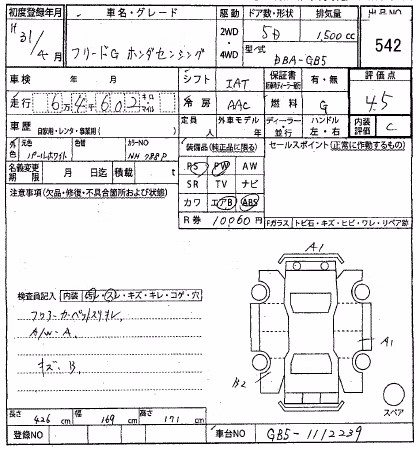 初度登録年月 車名・グレード 駆動 ドア数・形状 排気量 出品NO
H31/4月 フリードG ホンダセンシング 2WD・4WD 5D 1,500cc 542
型/式 DBA-GB5
車検 年 月 シフト IAT 保証書 有・無 評価点
走行 6万4千602キロ マイル 冷房 AAC 燃料 G 4.5
車歴 自家用・レンタ・事業用( ) 定員 外車モデル ディーラー・並行 ハンドル 左・右 内装評価 C
外色 元色 パールホワイト 色替 カラーNO NH788P 装備品(純正品に限る) セールスポイント(正常に作動するもの)
名義変更期限 月 日迄 積載 t PS PW AW
注意事項(欠品・修復・不具合箇所および状態) SR TV ナビ
カワ エアB ABS
R券 10060円 Fガラス トビ石・キズ・ヒビ・ワレ・リペア跡
A1
検査員記入 内装 汚レ・スレ・キズ・キレ・コゲ・穴
フロアーカーペットスリキレ
A/W-A A1
キズ、B B2
スペア
長さ 426cm 幅 169cm 高さ 171cm
登録NO 車台NO GB5-1112239